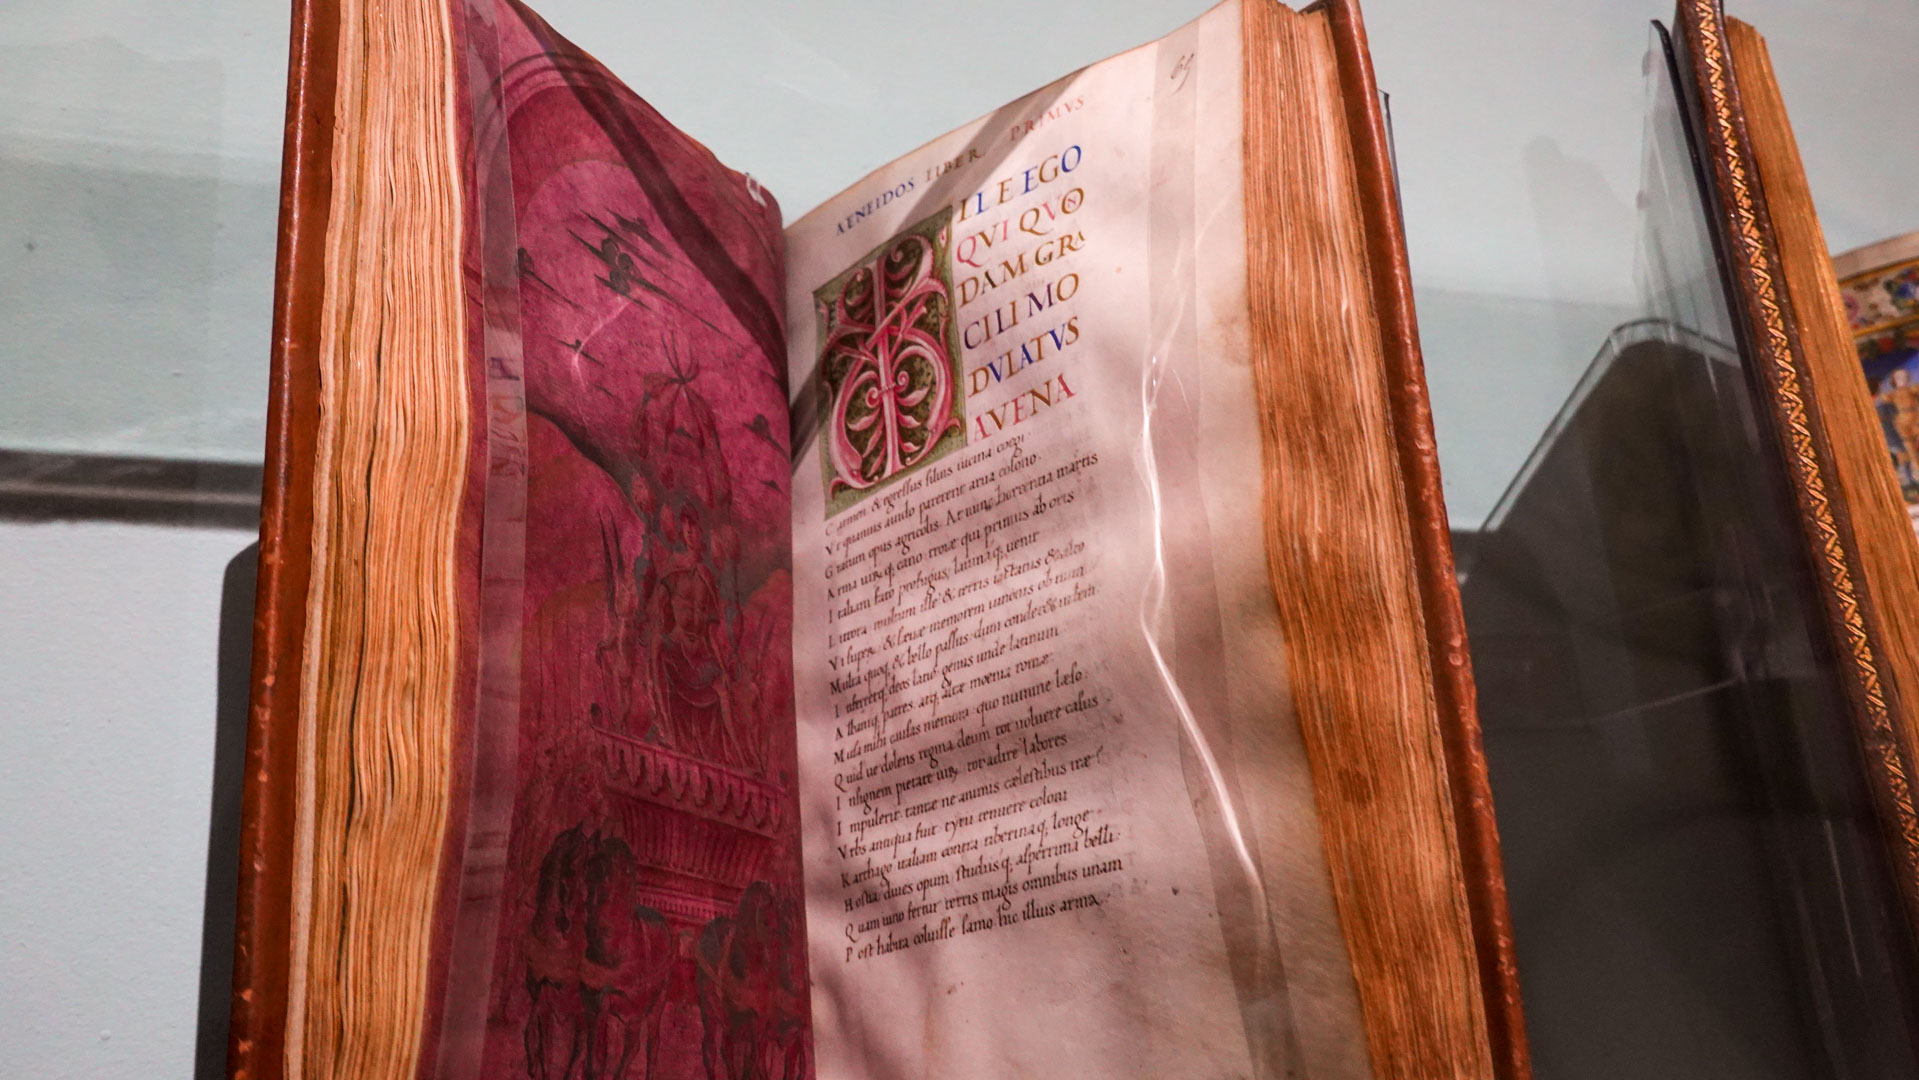 69
AENEIDOS LIBER PRIMVS
ILLE EGO
QVI QVO
DAM GRA
CILI MO
DVLATVS
AVENA
Carmen & egressus siluis uicina coegi
Vt quamuis auido parerent arua colono.
Gratum opus agricolis. At nunc horrentia martis
Arma uirūq; cano troiæ qui primus ab oris
Italiam fato profugus, lauinaq; uenit
Littora. multum ille & terris iactatus & alto
Vi super, & sæuæ memorem iunonis ob iram
Multa quoq; & bello passus. dum conderet urbem.
Inferretq; deos latio. genus unde latinum
Albaniq; patres. atq; altæ moenia romæ.
Musa mihi causas memora. quo numine læso.
Quid ue dolens regina deum tot uoluere casus
Insignem pietate uirū. tot adire labores
Impulerit. tantæ ne animis cælestibus iræ?
Vrbs antiqua fuit tyrii tenuere coloni
Karthago italiam contra tiberinaq; longe
Hostia. diues opum studiisq; asperrima belli.
Quam iuno fertur terris magis omnibus unam
Post habita coluisse samo. hic illius arma.